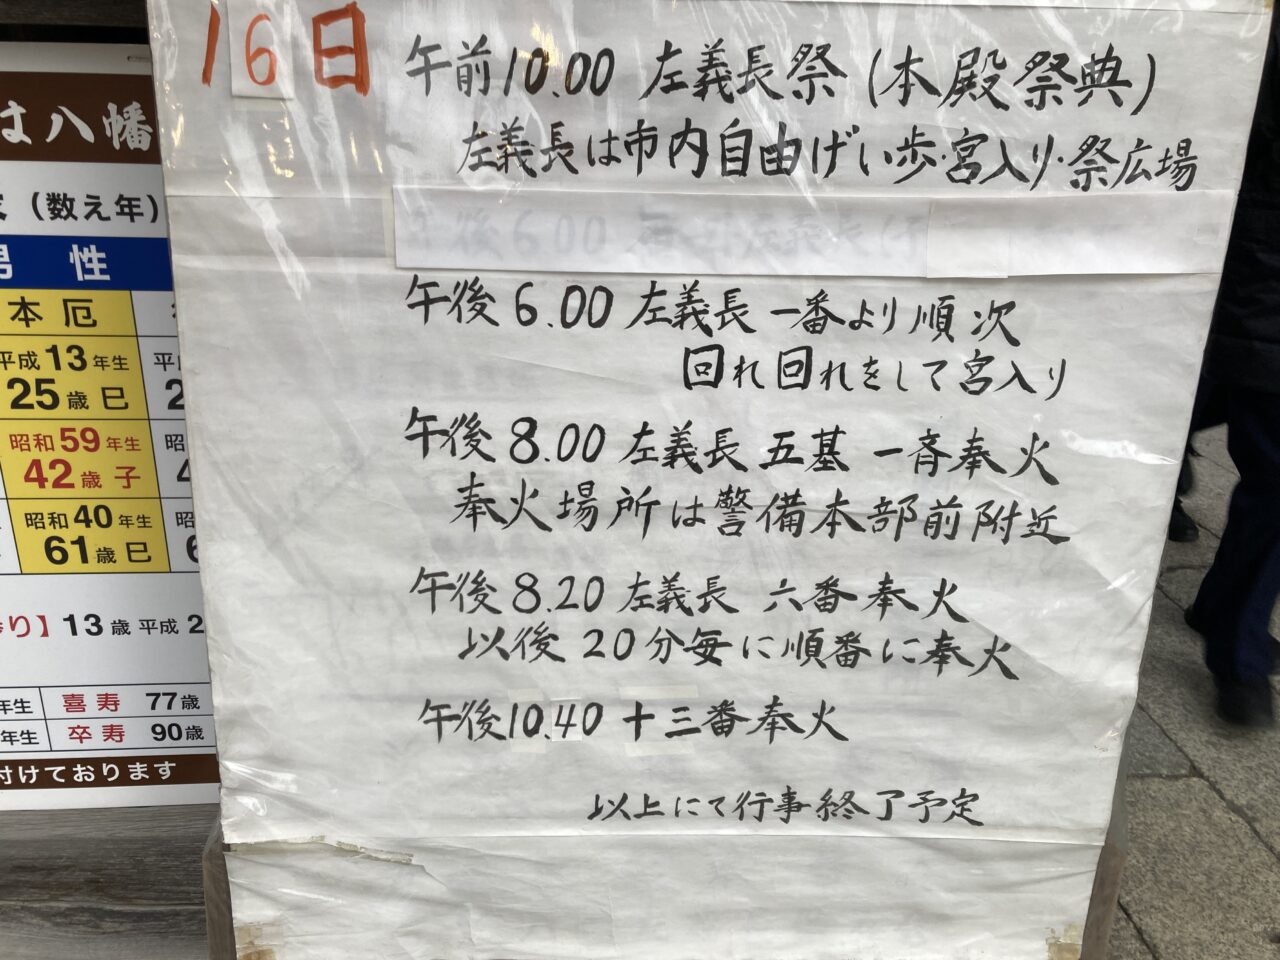 16日
午前10.00 左義長祭(本殿祭典)
左義長は市内自由げい歩・宮入り・祭広場
午後6.00 左義長 一番より順次
回れ回れをして宮入り
午後8.00 左義長 五基 一斉奉火
奉火場所は警備本部前附近
午後8.20 左義長 六番奉火
以後20分毎に順番に奉火
午後10.40 十三番奉火
以上にて行事終了予定
は八幡
(数え年)
男 性
本厄
平成13年生
25歳 巳
昭和59年生
42歳 子
昭和40年生
61歳 巳
り】13歳 平成2
年生 喜寿 77歳
年生 卒寿 90歳
付けております